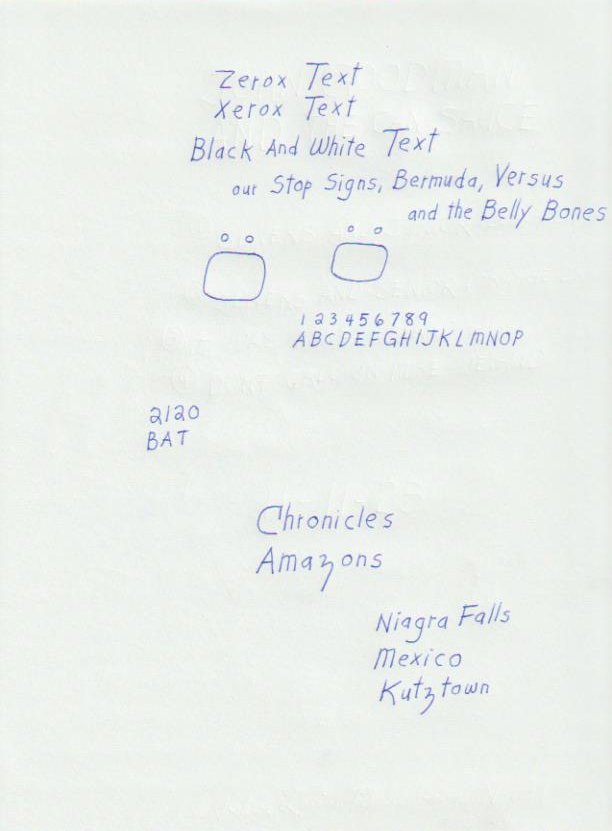 Zerox Text
Xerox Text
Black And White Text
our Stop Signs, Bermuda, Versus
and the Belly Bones
1 2 3 4 5 6 7 8 9
ABCDEFGHIJKLMNOP
2120
BAT
Chronicles
Amazons
Niagra Falls
Mexico
Kutztown